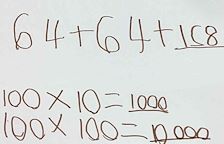 64+64+108
100×10=1000
100×100=10,000